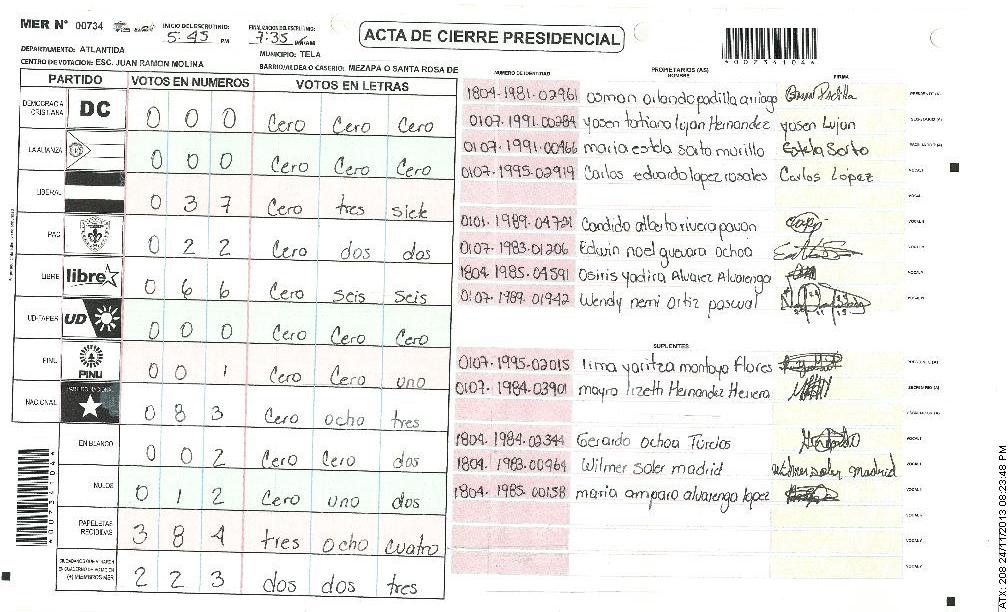 MER N° 00734
INICIO DEL ESCRUTINIO: 5:45 PM
FINALIZACION DEL ESCRUTINIO: 7:35 PM/AM
ACTA DE CIERRE PRESIDENCIAL
*00734104*
DEPARTAMENTO: ATLANTIDA
MUNICIPIO: TELA
CENTRO DE VOTACION: ESC. JUAN RAMON MOLINA
BARRIO/ALDEA O CASERIO: MEZAPA O SANTA ROSA DE
PARTIDO VOTOS EN NUMEROS VOTOS EN LETRAS
DEMOCRACIA CRISTIANA DC 0 0 0 Cero Cero Cero
LA ALIANZA 0 0 0 Cero Cero Cero
LIBERAL 0 3 7 Cero tres siete
PAC 0 2 2 Cero dos dos
LIBRE libre 0 6 6 Cero seis seis
UD-FAPER UD 0 0 0 Cero Cero Cero
PINU PINU 0 0 1 Cero Cero uno
NACIONAL 0 8 3 Cero ocho tres
EN BLANCO 0 0 2 Cero Cero dos
NULOS 0 1 2 Cero uno dos
PAPELETAS RECIBIDAS 3 8 4 tres ocho cuatro
(+) MIEMBROS MER 2 2 3 dos dos tres
*00734104*
NUMERO DE IDENTIDAD PROPIETARIOS (AS) NOMBRE FIRMA
1804-1981-02961 Osman orlando padilla arriaga
0107-1991-00284 yosen tatiana lujan Hernandez yosen Lujan
0107-1991-00466 maria estela sorto murillo Estela Sorto
0107-1995-02919 Carlos eduardo lopez rosales Carlos López
0101-1989-04721 Candido alberto rivera pavon
0107-1983-01206 Edwin noel guevara ochoa
1804-1985-04591 Osiris yadira Alvarez Alvarenga
0107-1989-01942 Wendy nemi ortiz pascual
SUPLENTES
0107-1995-02015 lima yaritza montoya Flores
0107-1984-03901 mayra lizeth Hernandez Herrera
1804-1984-02344 Gerardo ochoa Turcios
1804-1983-00964 Wilmer soler madrid Wilmer soler madrid
1804-1985-00158 maria amparo alvarenga lopez
ATX: 208 24/11/2013 08:23:48 PM